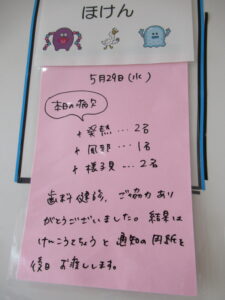 ほけん
5月29日(水)
本日の病欠
+ 発熱 … 2名
+ 風邪 … 1名
+ 様子見 … 2名
歯科健診、ご協力あり
がとうございました。結果は
けんこうてちょう と 通知の用紙を
後日 お渡しします。